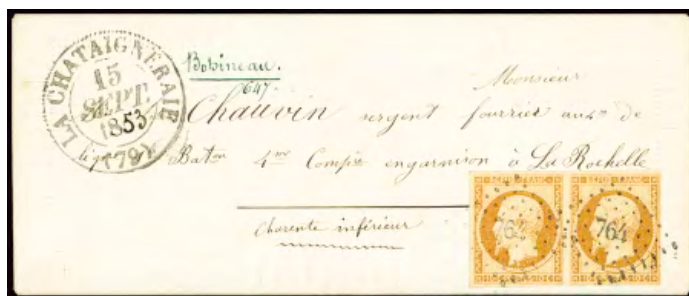 LA CHATAIGNERAIE
15
SEPT.
1853
(79)
Bobineau.
647.
Monsieur
Chauvin sergent fourrier au 4me de
ligne Baton 4me Compie engarnison à La Rochelle
Charente inférieur
REPUB FRANC
REPUB FRANC
764
764